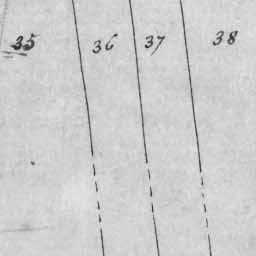 35 36 37 38